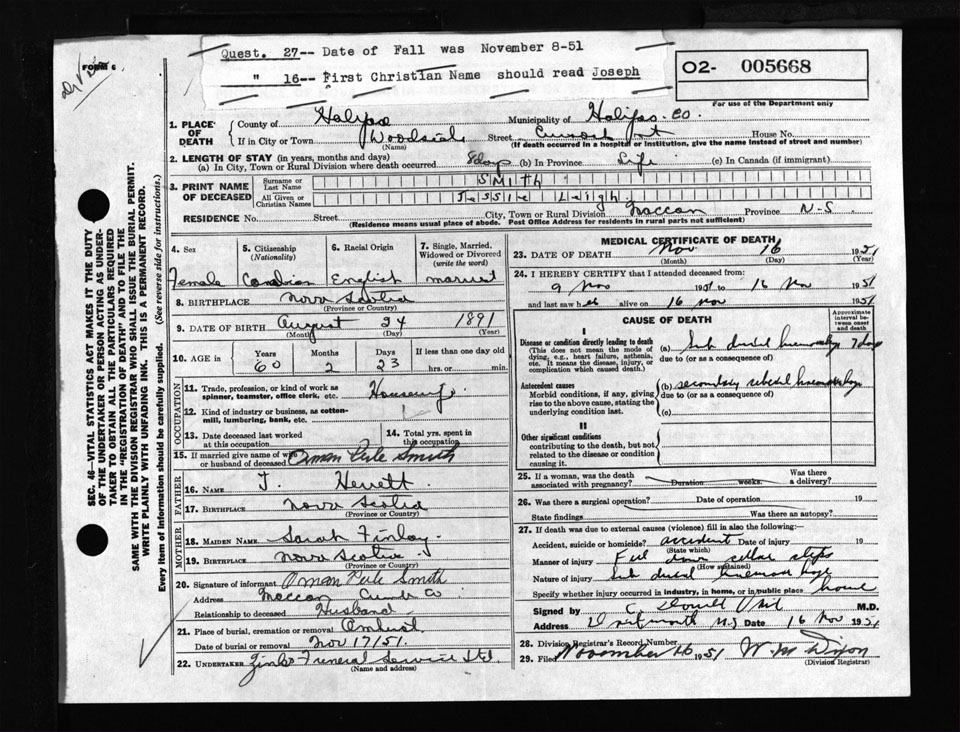 FORM 6
Quest. 27-- Date of Fall was November 8-51
" 16-- First Christian Name should read Joseph
O2- 005668
For use of the Department only
1. PLACE OF DEATH County of Halifax Municipality of Halifax Co.
If in City or Town Woodside Street House No.
(Name) (If death occurred in a hospital or institution, give the name instead of street and number)
2. LENGTH OF STAY (in years, months and days)
(a) In City, Town or Rural Division where death occurred 8 days (b) In Province Life (c) In Canada (if immigrant)
3. PRINT NAME OF DECEASED Surname or Last Name SMITH
All Given or Christian Names Jessie Leigh
RESIDENCE No. Street City, Town or Rural Division Maccan Province N-S.
(Residence means usual place of abode. Post Office Address for residents in rural parts not sufficient)
4. Sex 5. Citizenship (Nationality) 6. Racial Origin 7. Single, Married, Widowed or Divorced (write the word)
Female Canadian English married
8. BIRTHPLACE Nova Scotia
(Province or Country)
9. DATE OF BIRTH August 24 1891
(Month) (Day) (Year)
10. AGE in Years Months Days If less than one day old
60 2 23 hrs. or min.
OCCUPATION
11. Trade, profession, or kind of work as spinner, teamster, office clerk, etc. Housewife
12. Kind of industry or business, as cotton-mill, lumbering, bank, etc.
13. Date deceased last worked at this occupation 14. Total yrs. spent in this occupation
15. If married give name of wife or husband of deceased Oman Pete Smith
FATHER
16. NAME J. Herrett
17. BIRTHPLACE Nova Scotia
(Province or Country)
MOTHER
18. MAIDEN NAME Sarah Finlay
19. BIRTHPLACE Nova Scotia
(Province or Country)
20. Signature of informant Oman Pete Smith
Address Maccan Cumb Co
Relationship to deceased Husband
21. Place of burial, cremation or removal Amherst
Date of burial or removal Nov 17/51.
22. UNDERTAKER Funeral Service Ltd.
(Name and address)
MEDICAL CERTIFICATE OF DEATH
23. DATE OF DEATH Nov 16 1951
(Month) (Day)
24. I HEREBY CERTIFY that I attended deceased from:
9 Nov 1951 to 16 Nov 1951
and last saw her alive on 16 Nov 1951
CAUSE OF DEATH
Approximate interval between onset and death
I
Disease or condition directly leading to death (a) Sub dural hemorrhage 7 days
(This does not mean the mode of dying, e.g., heart failure, asthenia, etc. It means the disease, injury, or complication which caused death.)
due to (or as a consequence of)
Antecedent causes (b) secondary subdural hemorrhage
Morbid conditions, if any, giving rise to the above cause, stating the underlying condition last.
due to (or as a consequence of)
(c)
II
Other significant conditions
contributing to the death, but not related to the disease or condition causing it.
25. If a woman, was the death associated with pregnancy? Duration weeks. Was there a delivery?
26. Was there a surgical operation? Date of operation 19
State findings Was there an autopsy?
27. If death was due to external causes (violence) fill in also the following:—
Accident, suicide or homicide? accident Date of injury 19
(State which)
Manner of injury Fell down cellar steps
(How sustained)
Nature of injury Sub dural hemorrhage
Specify whether injury occurred in industry, in home, or in public place home
Signed by M.D.
Address Dartmouth N.S Date 16 Nov 1951
28. Division Registrar's Record Number
29. Filed November 16 1951 W. M. Dixon
(Division Registrar)
SEC. 46—VITAL STATISTICS ACT MAKES IT THE DUTY
OF THE UNDERTAKER OR PERSON ACTING AS UNDER-
TAKER TO OBTAIN ALL THE PARTICULARS REQUIRED
IN THE "REGISTRATION OF DEATH" AND TO FILE THE
SAME WITH THE DIVISION REGISTRAR WHO SHALL ISSUE THE BURIAL PERMIT.
WRITE PLAINLY WITH UNFADING INK. THIS IS A PERMANENT RECORD.
Every item of information should be carefully supplied. (See reverse side for instructions.)